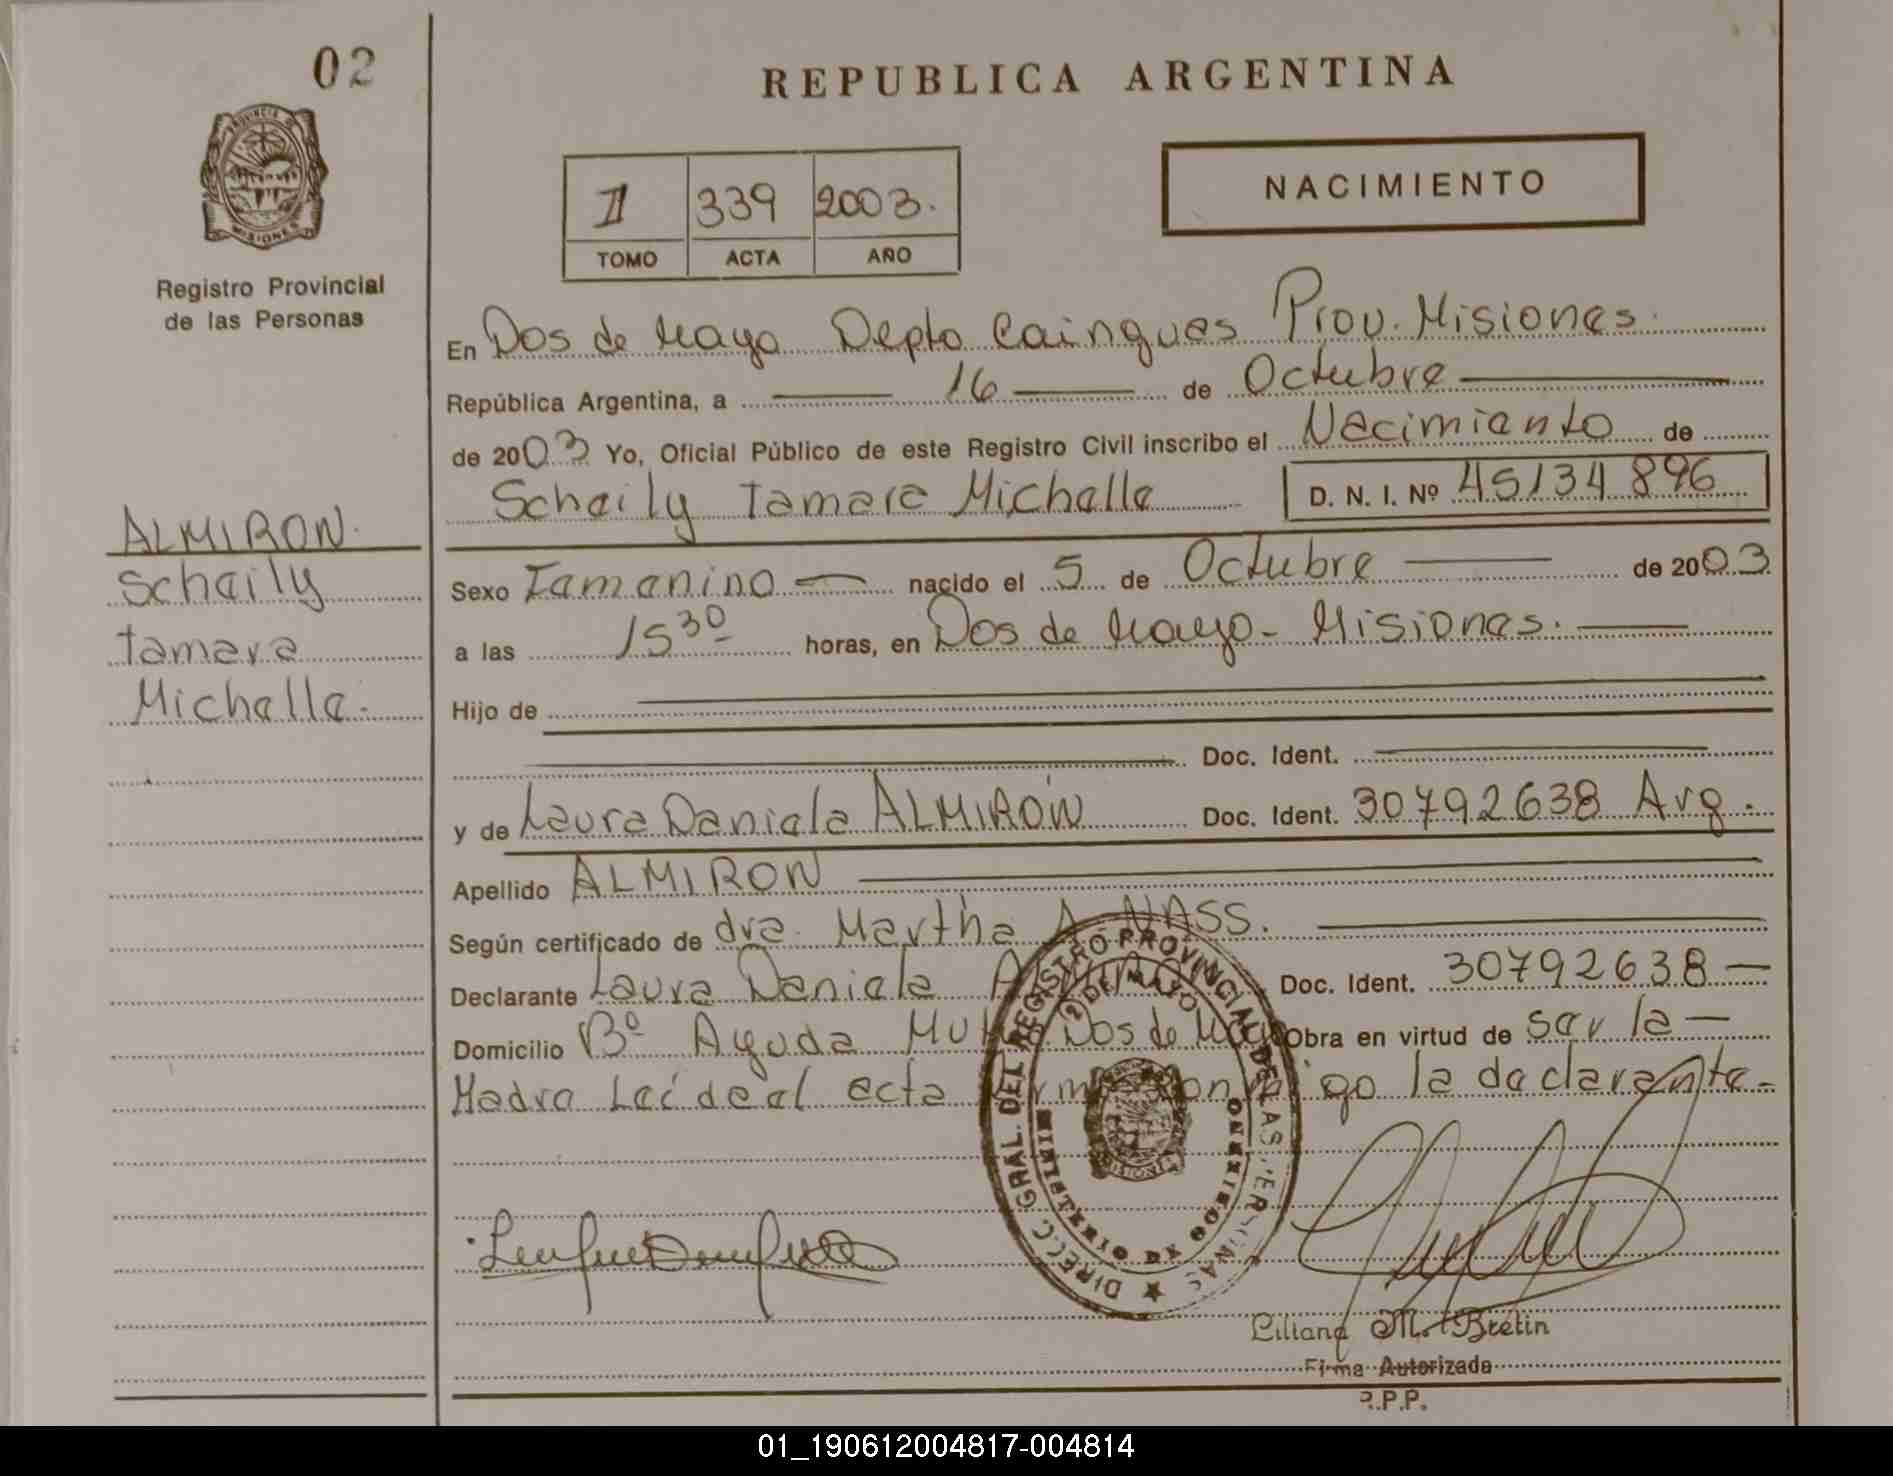 02
PROVINCIA DE
MISIONES
Registro Provincial
de las Personas
ALMIRON.
Schaily
Tamara
Michelle.
REPUBLICA ARGENTINA
II 339 2003.
TOMO ACTA AÑO
NACIMIENTO
En Dos de Mayo Depto Cainguas Prov. Misiones.
República Argentina, a 16 de Octubre
de 2003 Yo, Oficial Público de este Registro Civil inscribo el Nacimiento de
Schaily Tamara Michelle D. N. I. Nº 45134896
Sexo Femenino nacido el 5 de Octubre de 2003
a las 15 30 horas, en Dos de Mayo - Misiones.
Hijo de
Doc. Ident.
y de Laura Daniela ALMIRÓN Doc. Ident. 30792638 Arg.
Apellido ALMIRON
Según certificado de dra. Martha A. NASS.
Declarante Laura Daniela Doc. Ident. 30792638 —
Domicilio Bº Ayuda Dos de Mayo Obra en virtud de ser la —
Madre Leída el acta la declarante -
DIRECC. GRAL. DEL REGISTRO PROVINCIAL DE LAS PERSONAS
2 DE MAYO
MINISTERIO DE GOBIERNO
Liliana M. Bretin
Firma Autorizada
R.P.P.
01_190612004817-004814